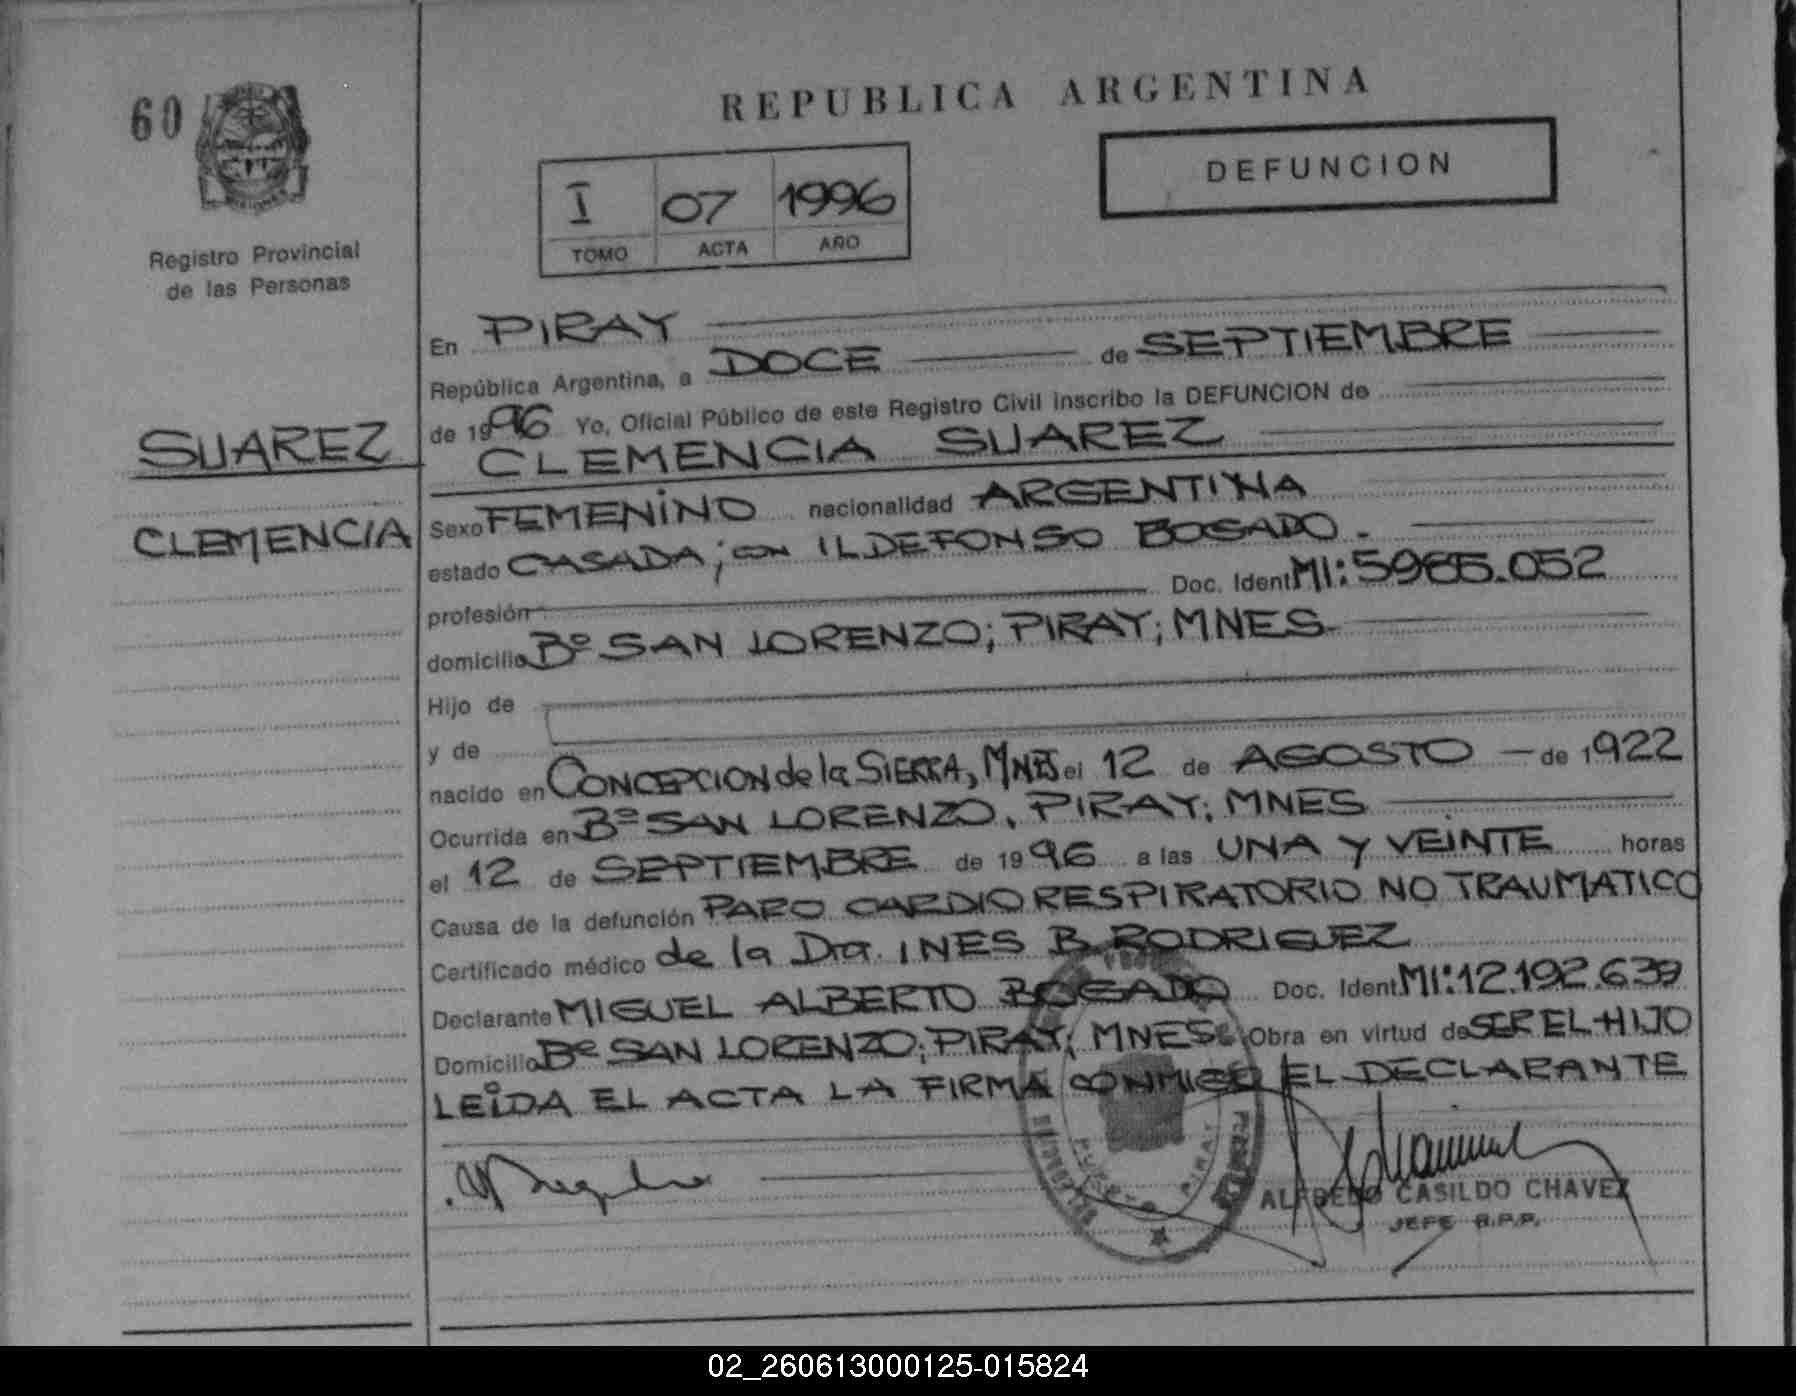 60
Registro Provincial
de las Personas
SUAREZ
CLEMENCIA
REPUBLICA ARGENTINA
I 07 1996
TOMO ACTA AÑO
DEFUNCION
En PIRAY
República Argentina, a DOCE de SEPTIEMBRE
de 1996 Yo, Oficial Público de este Registro Civil inscribo la DEFUNCION de
CLEMENCIA SUAREZ
Sexo FEMENINO nacionalidad ARGENTINA
estado CASADA; con ILDEFONSO BOGADO.
profesión Doc. Ident MI: 5985.052
domicilio Bº SAN LORENZO; PIRAY; MNES
Hijo de
y de
nacido en CONCEPCION de la SIERRA, MNES el 12 de AGOSTO de 1922
Ocurrida en Bº SAN LORENZO, PIRAY; MNES
el 12 de SEPTIEMBRE de 1996 a las UNA Y VEINTE horas
Causa de la defunción PARO CARDIORESPIRATORIO NO TRAUMATICO
Certificado médico de la Dra. INES B. RODRIGUEZ
Declarante MIGUEL ALBERTO BOGADO Doc. Ident MI: 12.192.639
Domicilio Bº SAN LORENZO; PIRAY; MNES Obra en virtud de SER EL HIJO
LEIDA EL ACTA LA FIRMA CONMIGO EL DECLARANTE
ALFREDO CASILDO CHAVEZ
JEFE R.P.P.
02_260613000125-015824